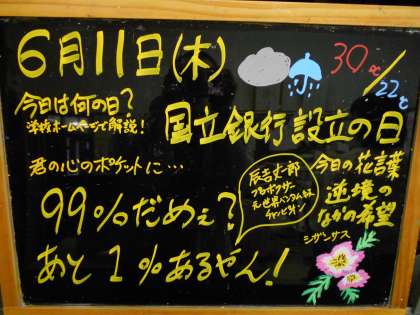 6月11日(木)
30℃/22℃
今日は何の日?
学校ホームページで解説!
国立銀行設立の日
君の心のポケットに…
99%だめぇ?
あと1%あるやん!
辰吉丈一郎
プロボクサー
元世界バンタム級
チャンピオン
今日の花言葉
逆境の
なかの希望
シザンサス